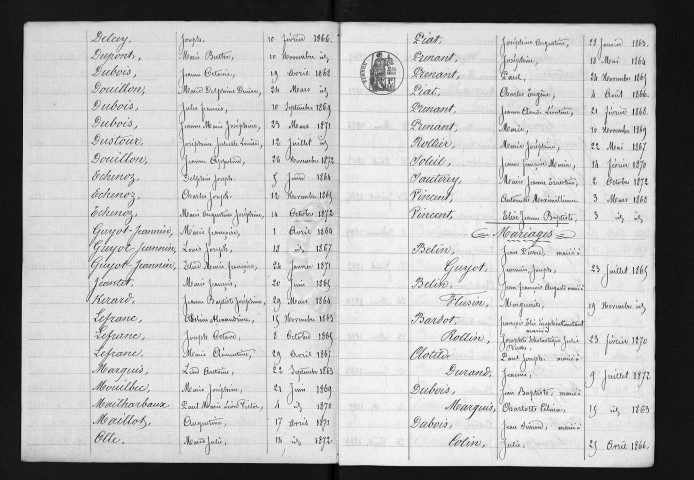 Delcey, Joseph, 10 février 1866.
Dupont, Marie Berthe, 10 Novembre id
Dubois, Jeanne Octavie, 19 Avril 1868
Douillon, Marie Delphine 24 Mars id
Dubois, Jules francis, 10 Septembre 1869
Dubois, Jeanne Marie Joséphine, 23 Mars 1871
Dustour, Joséphine Juliette 12 Juillet id
Douillon, Jeanne 26 Novembre 1872
Echenoz, Delphin Joseph 5 Juin 1864
Echenoz, Charles Joseph 12 Novembre 1865
Echenoz, Marie Augustine Joséphine, 14 Octobre 1872
Guyot-Jeannin, Marie françoise, 1 Avril 1864
Guyot-Jeannin, Louis Joseph, 18 id 1867
Guyot-Jeannin, Marie françoise, 24 Janvier 1871
Jeantet, Marie françois, 20 Juin 1865
Kerard, Jeanne Baptiste Joséphine, 29 Mars 1864
Lefranc, Alexandrine, 15 Novembre 1863
Lefranc, Joseph Octave, 2 Octobre 1865
Lefranc, Marie Clémentine, 29 Avril 1867
Marquis, Antoine, 22 Septembre 1863
Mouilbee, Marie Joséphine, 21 Juin 1869
Mailharbaux Paul Marie Léon Victor, 4 id 1870
Maillot, Augustine, 17 Avril 1871
Olle, Marie Julie, 14 id 1872.
Piat, Joséphine Augustine, 28 Janvier 1863.
Prenant, Joséphine, 18 Mai 1864
Prenant, Paul, 24 Novembre 1865
Piat, Charles Eugène, 4 Août 1866.
Prenant, Jeanne Claude Léontine, 21 février 1868.
Prenant, Marie, 10 Novembre 1869
Rollier, Marie Joséphine, 22 Mai 1867
Soleil, Jeanne françoise Maria, 14 février 1870
Sauterey, Marie Jeanne Ernestine, 2 Octobre 1872
Vincent, Antoinette Maximilienne 3 Mars 1868
Vincent, Elise Jeanne Baptiste, 3 id id
Mariages
Belin, Jean Pierre, marié à
Guyot, Joseph, 23 Juillet 1865
Belin, Jean françois Auguste marié à
Flusin, Marguerite, 19 Novembre id
Bardot, françois Elie marié à
Rollin, Julie 23 février 1870
Clotet, Paul Joseph, marié à
Durand, Jeanne, 9 Juillet 1872
Dubois, Jean Baptiste, marié à
Marquis, Charlotte Célina, 15 id 1863
Dubois, Jean Siméon, marié à
Colin, Julie, 25 Avril 1866.